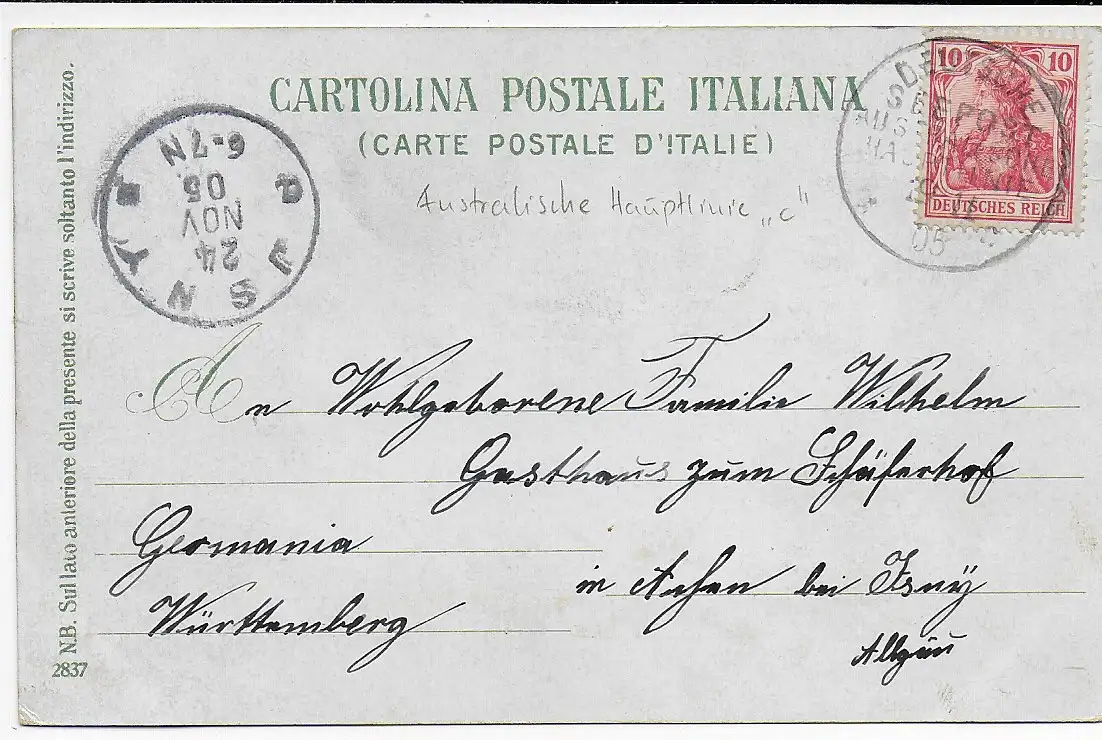 CARTOLINA POSTALE ITALIANA
(CARTE POSTALE D'ITALIE)
10 10
DEUTSCHES REICH
DEUTSCHE
SEEPOST
05
Australische Hauptlinie „c"
6-7N
05
NOV
24
An Wohlgeborene Familie Wilhelm
Gasthaus zum Schäferhof
Germania
in Achen bei Isny
Württemberg
Allgäu
N.B. Sul lato anteriore della presente si scrive soltanto l'indirizzo.
2837